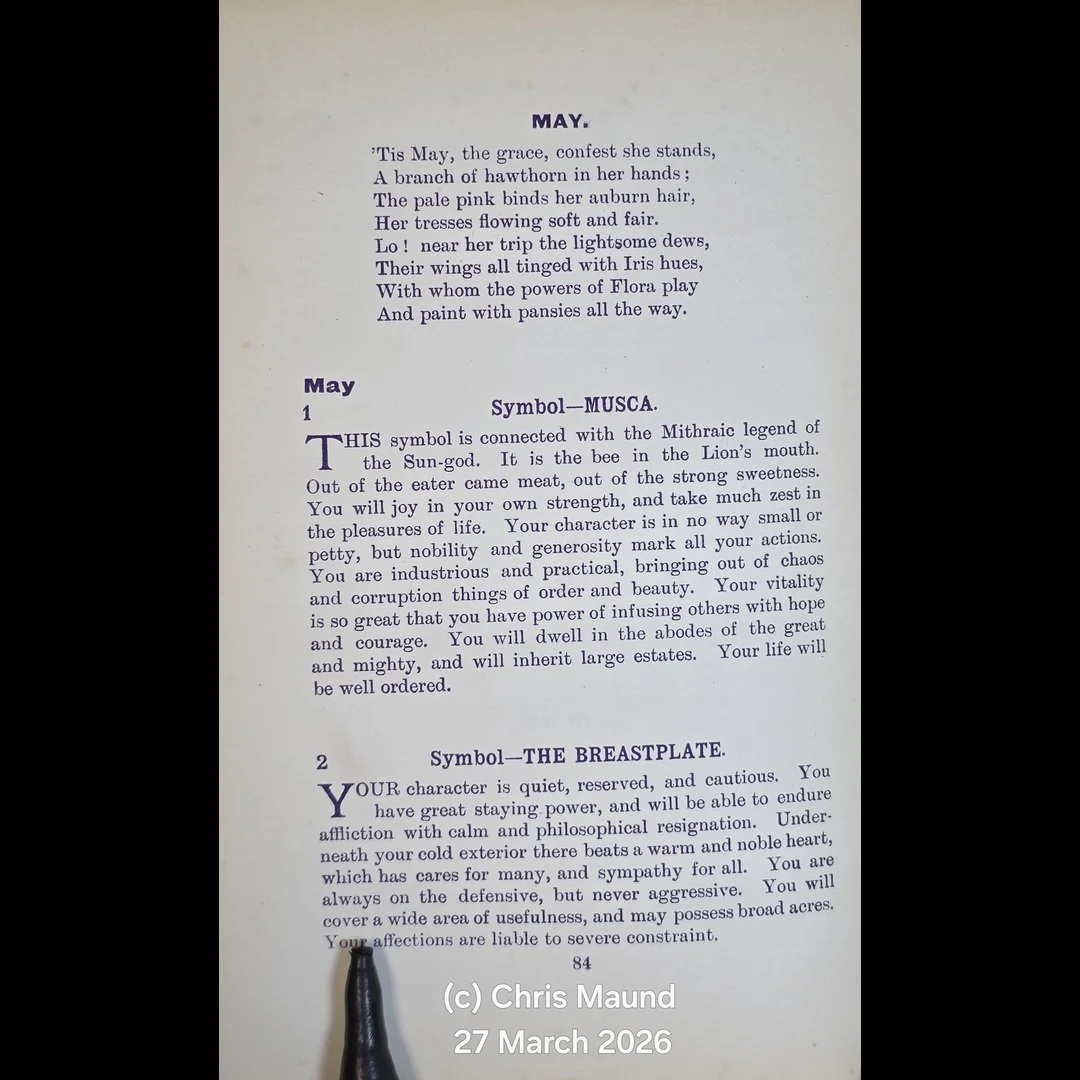 MAY.
'Tis May, the grace, confest she stands,
A branch of hawthorn in her hands;
The pale pink binds her auburn hair,
Her tresses flowing soft and fair.
Lo! near her trip the lightsome dews,
Their wings all tinged with Iris hues,
With whom the powers of Flora play
And paint with pansies all the way.
May
1
Symbol—MUSCA.
THIS symbol is connected with the Mithraic legend of
the Sun-god. It is the bee in the Lion's mouth.
Out of the eater came meat, out of the strong sweetness.
You will joy in your own strength, and take much zest in
the pleasures of life. Your character is in no way small or
petty, but nobility and generosity mark all your actions.
You are industrious and practical, bringing out of chaos
and corruption things of order and beauty. Your vitality
is so great that you have power of infusing others with hope
and courage. You will dwell in the abodes of the great
and mighty, and will inherit large estates. Your life will
be well ordered.
2 Symbol—THE BREASTPLATE.
YOUR character is quiet, reserved, and cautious. You
have great staying power, and will be able to endure
affliction with calm and philosophical resignation. Under-
neath your cold exterior there beats a warm and noble heart,
which has cares for many, and sympathy for all. You are
always on the defensive, but never aggressive. You will
cover a wide area of usefulness, and may possess broad acres.
Your affections are liable to severe constraint.
84
(c) Chris Maund
27 March 2026